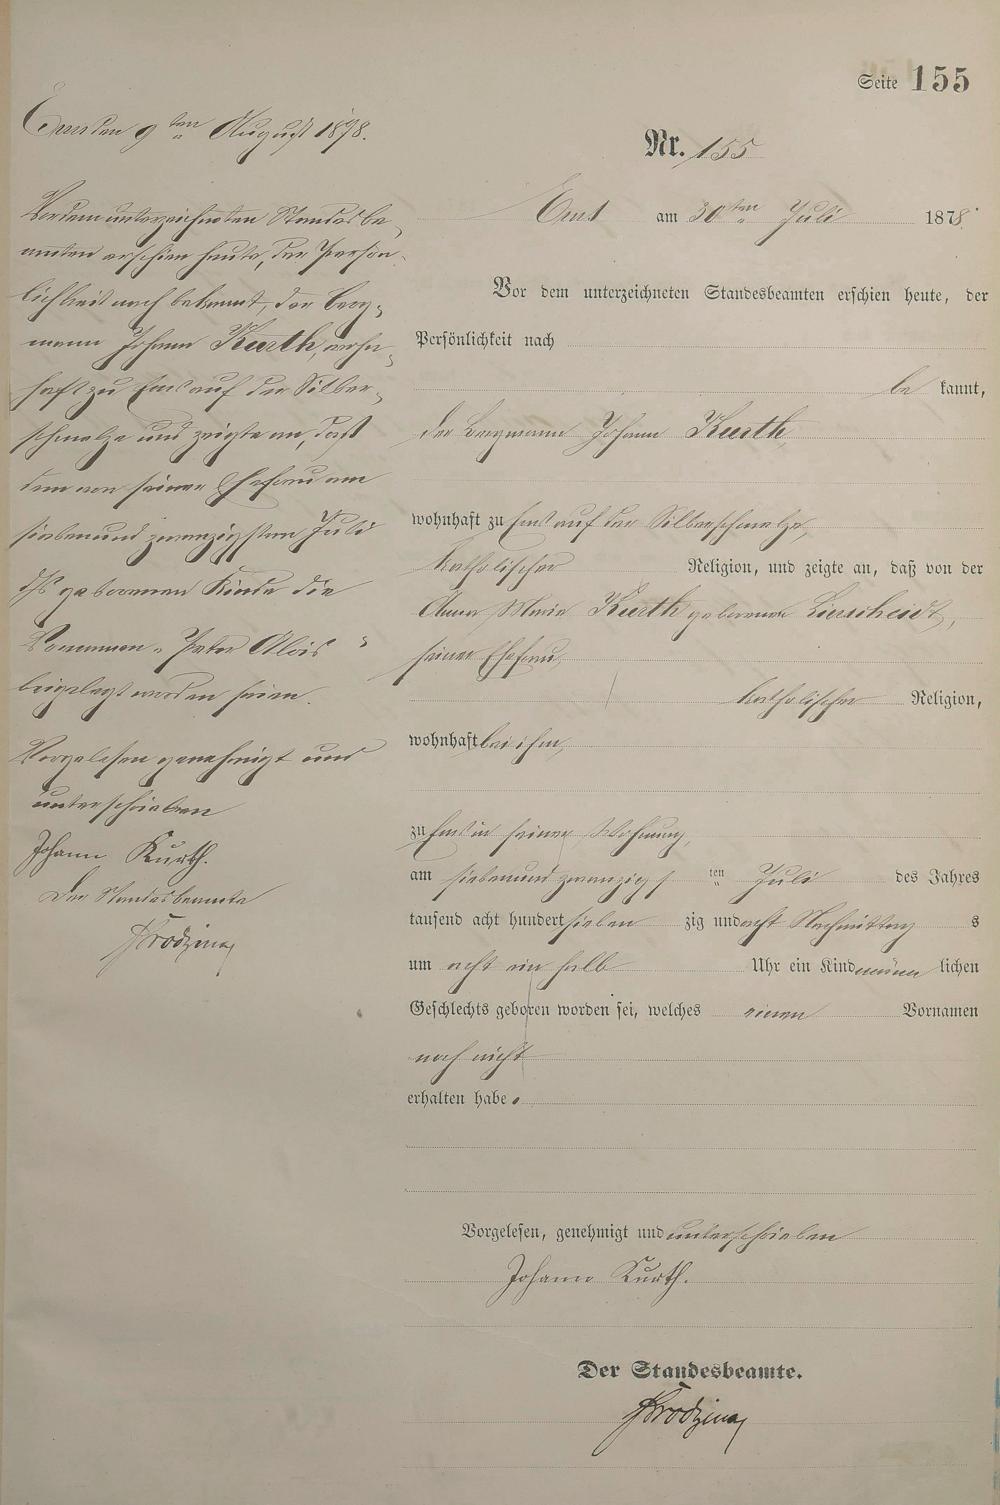 Seite 155
Nr. 155
Ems am 30ten Juli 1878.
Vor dem unterzeichneten Standesbeamten erschien heute, der
Persönlichkeit nach
be kannt,
der Bergmann Johann Kurth,
wohnhaft zu Ems auf der Silberschmelze,
katholischer Religion, und zeigte an, daß von der
Anna Maria Kurth geborenen Lierscheidt,
seiner Ehefrau,
katholischer Religion,
wohnhaft bei ihm,
zu Ems in seiner Wohnung,
am siebenundzwanzigs ten Juli des Jahres
tausend acht hundert sieben zig und acht Nachmittag s
um acht ein halb Uhr ein Kind männ lichen
Geschlechts geboren worden sei, welches einen Vornamen
noch nicht
erhalten habe.
Vorgelesen, genehmigt und unterschrieben
Johann Kurth.
Der Standesbeamte.
Ems den 9ten August 1878.
Vor dem unterzeichneten Standesbe-
amten erschien heute, der Persön-
lichkeit nach bekannt, der Berg-
mann Johann Kurth, wohn-
haft zu Ems auf der Silber-
schmelze und zeigte an, daß
dem von seiner Ehefrau am
siebenundzwanzigsten Juli
dss geborenen Kinde die
Vornamen "Peter Alois"
beigelegt worden seien.
Vorgelesen genehmigt und
unterschrieben
Johann Kurth.
Der Standesbeamte